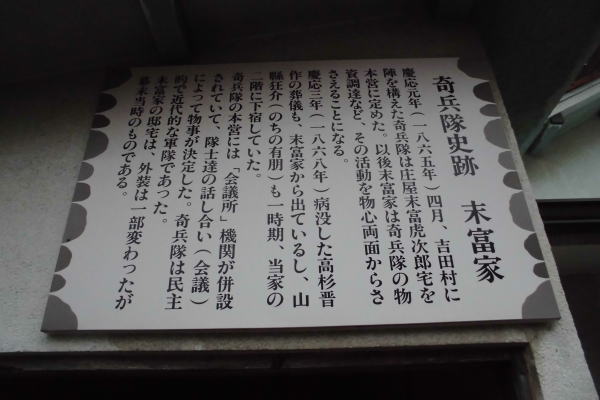 奇兵隊史跡　末富家
慶応元年（一八六五年）四月、吉田村に
陣を構えた奇兵隊は庄屋末富虎次郎宅を
本営に定めた。以後末富家は奇兵隊の物
資調達など、その活動を物心両面からさ
さえることになる。
慶応三年（一八六八年）病没した高杉晋
作の葬儀も、末富家から出ているし、山
縣狂介（のちの有朋）も一時期、当家の
二階に下宿していた。
奇兵隊の本営には「会議所」機関が併設
されていて、隊士達の話し合い（会議）
によって物事が決定した。奇兵隊は民主
的で近代的な軍隊であった。
末富家の邸宅は、外装は一部変わったが
幕末当時のものである。